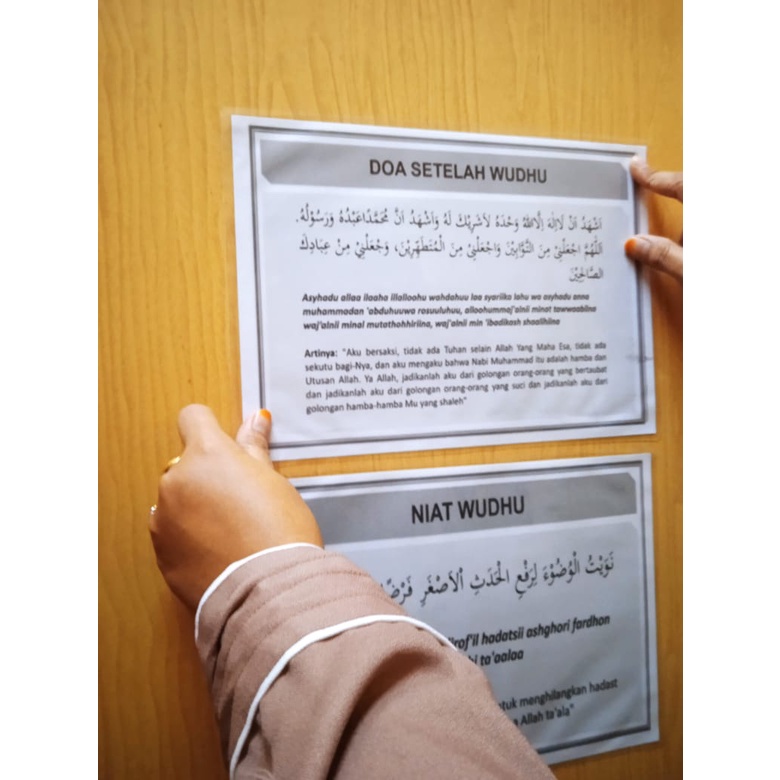 DOA SETELAH WUDHU
اَشْهَدُ اَنْ لَااِلَهَ اِلَّااللهُ وَحْدَهُ لَاشَرِيْكَ لَهُ وَاَشْهَدُ اَنَّ مُحَمَّدًاعَبْدُهُ وَرَسُوْلُهُ.
اَللّٰهُمَّ اجْعَلْنِيْ مِنَ التَّوَّابِيْنَ وَاجْعَلْنِيْ مِنَ الْمُتَطَهِّرِيْنَ، وَجْعَلْنِيْ مِنْ عِبَادِكَ
الصَّالِحِيْنَ
Asyhadu allaa ilaaha illalloohu wahdahuu laa syariika lahu wa asyhadu anna
muhammadan 'abduhuuwa rosuuluhuu, alloohummaj'alnii minat tawwaabiina
waj'alnii minal mutathohhiriina, waj'alnii min 'ibadikash shaalihiina
Artinya: "Aku bersaksi, tidak ada Tuhan selain Allah Yang Maha Esa, tidak ada
sekutu bagi-Nya, dan aku mengaku bahwa Nabi Muhammad itu adalah hamba dan
Utusan Allah. Ya Allah, jadikanlah aku dari golongan orang-orang yang bertaubat
dan jadikanlah aku dari golongan orang-orang yang suci dan jadikanlah aku dari
golongan hamba-hamba Mu yang shaleh"
NIAT WUDHU
نَوَيْتُ الْوُضُوْءَ لِرَفْعِ الْحَدَثِ اْلاَصْغَرِ فَرْضًا
rof'il hadatsii ashghori fardhon
ta'aalaa
tuk menghilangkan hadast
Allah ta'ala"